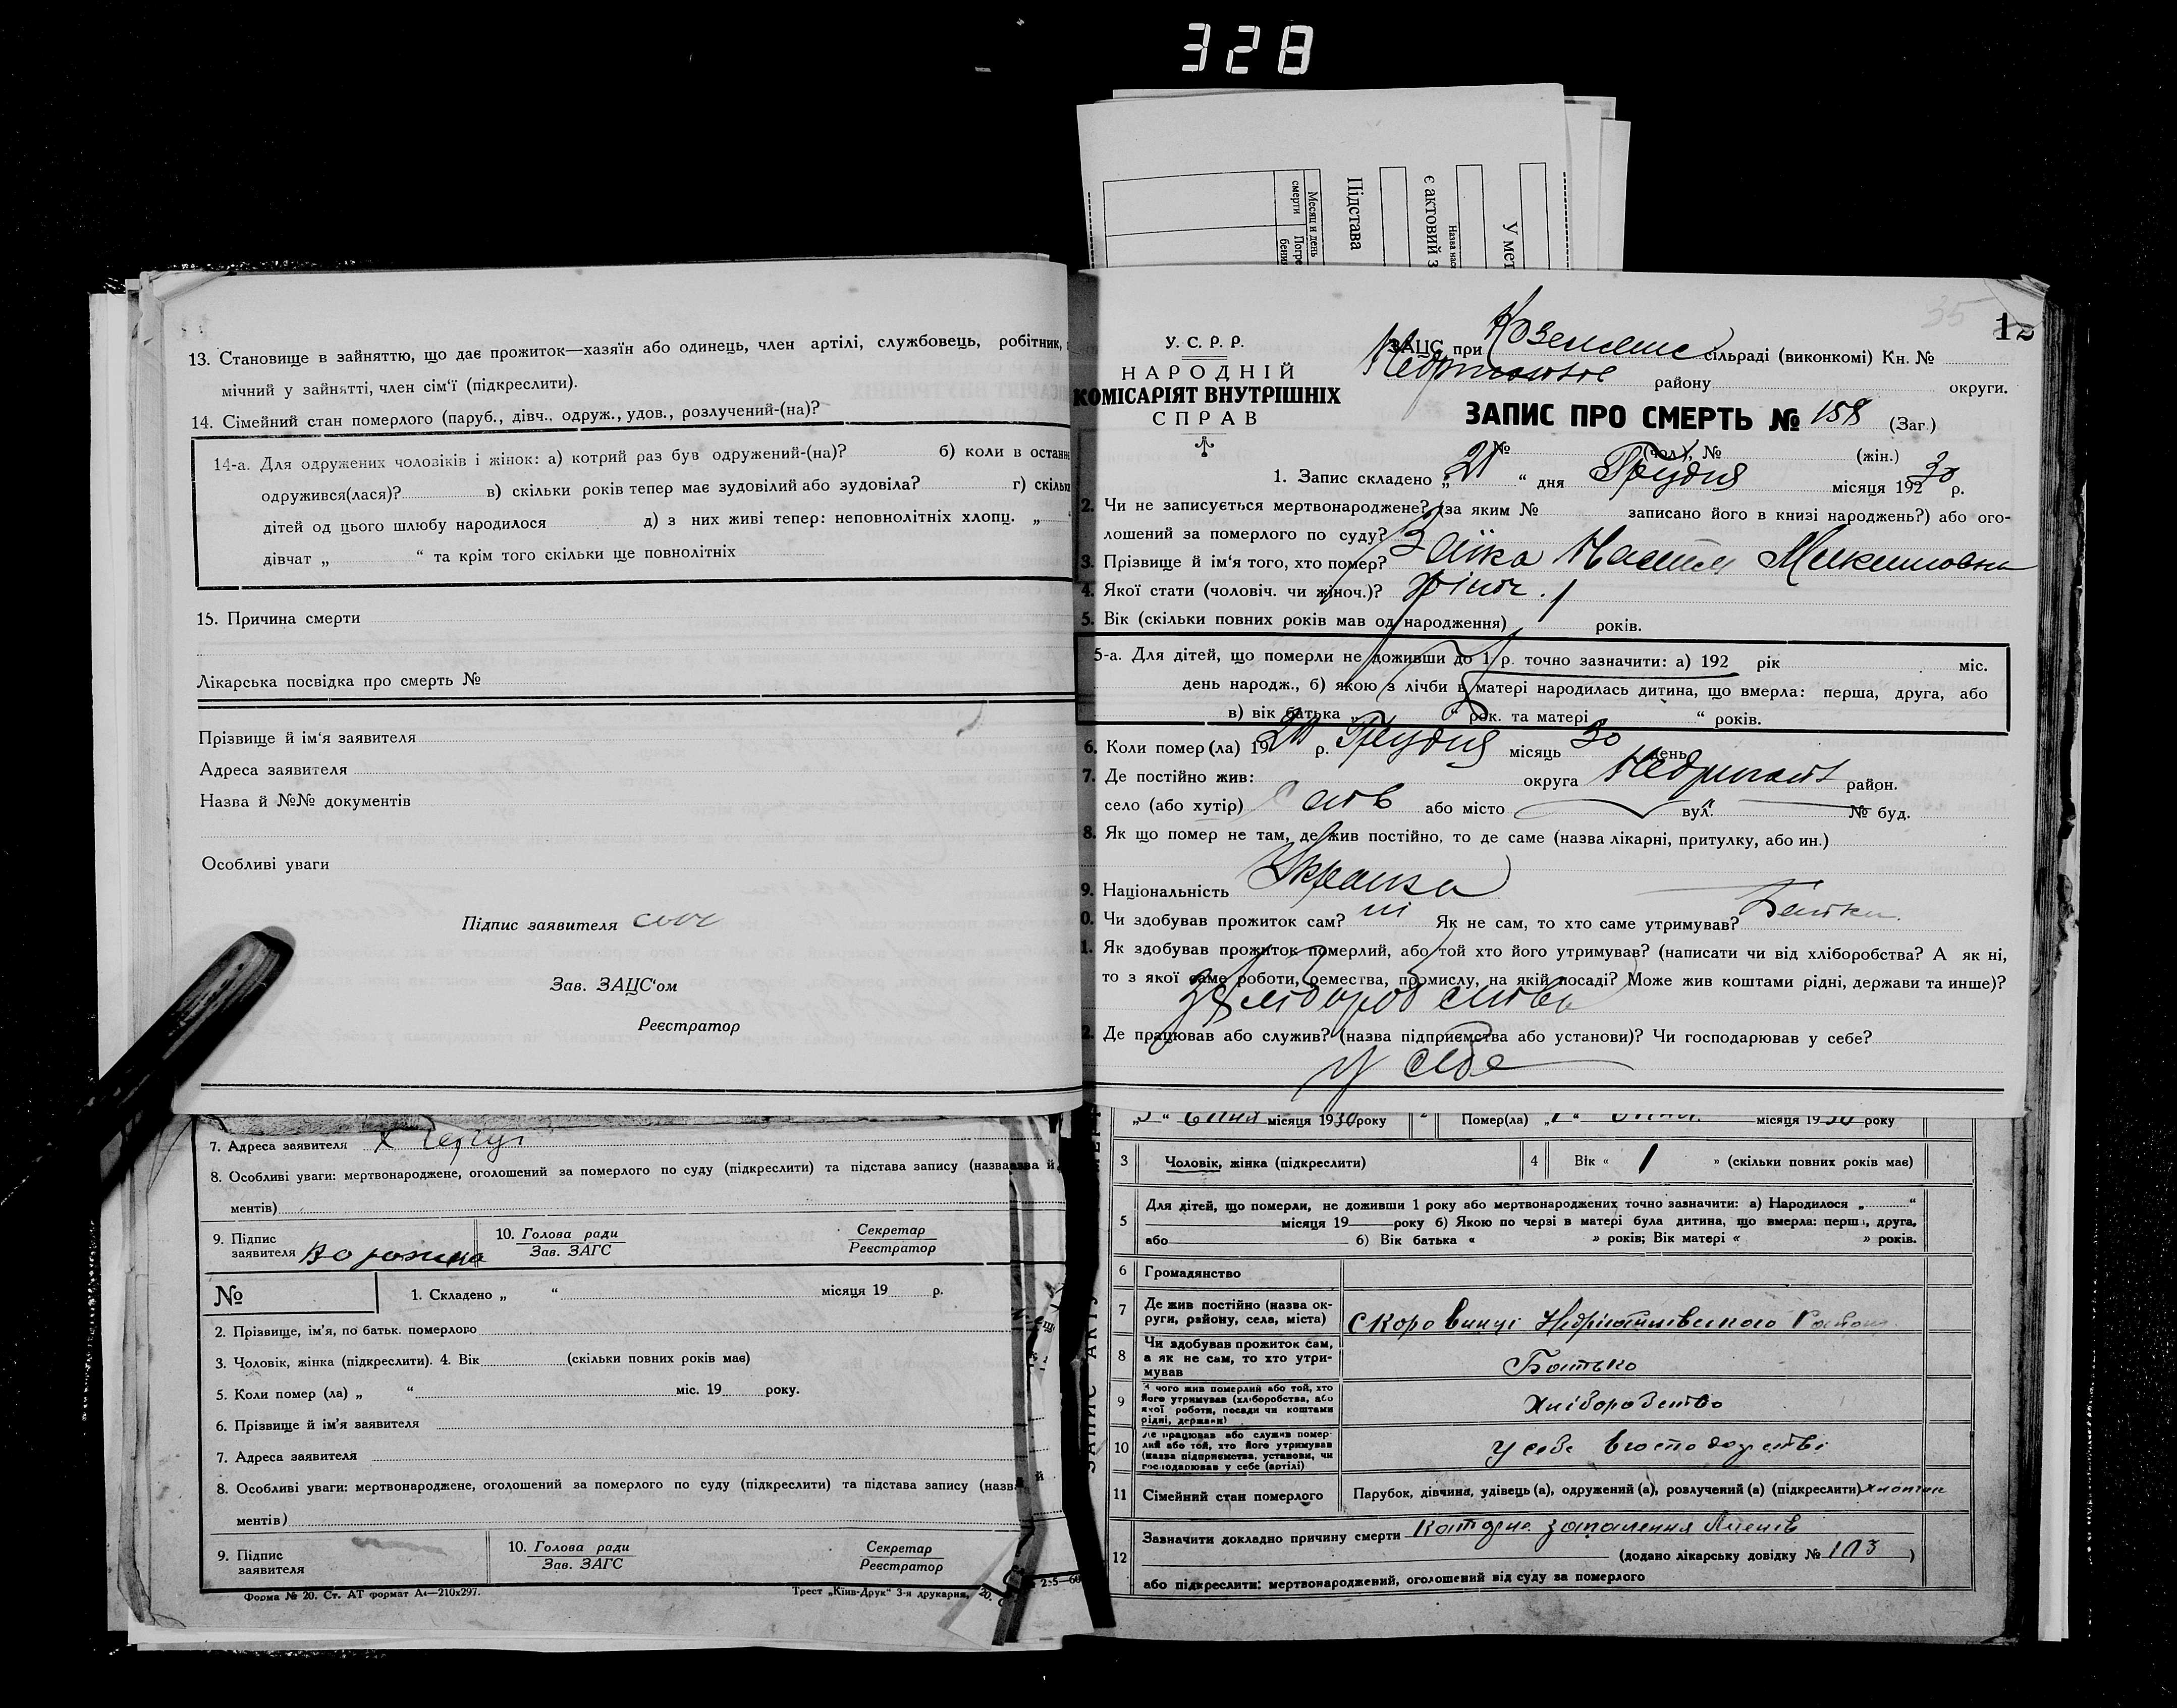 328
Месяц и день
смерти
Погре
бения
Підстава
є актовий з
Назва нас
У мет
13. Становище в зайняттю, що дає прожиток—хазяїн або одинець, член артілі, службовець, робітник,
мічний у зайнятті, член сім'ї (підкреслити).
14. Сімейний стан померлого (паруб., дівч., одруж., удов., розлучений-(на)?
14-а. Для одружених чоловіків і жінок: а) котрий раз був одружений-(на)? б) коли в останнє
одружився(лася)? в) скільки років тепер має зудовілий або зудовіла? г) скільки
дітей од цього шлюбу народилося д) з них живі тепер: неповнолітніх хлопц. „
дівчат „ “ та крім того скільки ще повнолітніх
15. Причина смерти
Лікарська посвідка про смерть №
Прізвище й ім'я заявителя
Адреса заявителя
Назва й №№ документів
Особливі уваги
Підпис заявителя
Зав. ЗАЦС'ом
Реєстратор
7. Адреса заявителя
8. Особливі уваги: мертвонароджене, оголошений за померлого по суду (підкреслити) та підстава запису (назва й
ментів)
9. Підпис заявителя
10. Голова ради
Зав. ЗАГС
Секретар
Реєстратор
№
1. Складено „ “ місяця 19 р.
2. Прізвище, ім'я, по батьк. померлого
3. Чоловік, жінка (підкреслити). 4. Вік (скільки повних років має)
5. Коли помер (ла) „ “ міс. 19 року.
6. Прізвище й ім'я заявителя
7. Адреса заявителя
8. Особливі уваги: мертвонароджене, оголошений за померлого по суду (підкреслити) та підстава запису (назва й
ментів)
9. Підпис заявителя
10. Голова ради
Зав. ЗАГС
Секретар
Реєстратор
Форма № 20. Ст. АТ формат А4—210х297.
Трест „Київ-Друк“ 3-я друкарня,
35
12
У. С. Р. Р.
НАРОДНІЙ
КОМІСАРІЯТ ВНУТРІШНІХ
СПРАВ
ЗАЦС при сільраді (виконкомі) Кн. №
району округи.
ЗАПИС ПРО СМЕРТЬ № 158 (Заг.)
№ (чол.), № (жін.)
1. Запис складено „21 “ дня Грудня місяця 192 30 р.
2. Чи не записується мертвонароджене? (за яким № записано його в книзі народжень?) або ого-
лошений за померлого по суду?
3. Прізвище й ім'я того, хто помер? Заїка Настя
4. Якої стати (чоловіч. чи жіноч.)? жіноч.
5. Вік (скільки повних років мав од народження) років.
5-а. Для дітей, що померли не доживши до 1 р. точно зазначити: а) 192 рік міс.
день народж., б) якою з лічби в матері народилась дитина, що вмерла: перша, друга, або
в) вік батька „ “ рок. та матері “ років.
6. Коли помер (ла) 19 20 р. Грудня місяць 30 день
7. Де постійно жив: округа район.
село (або хутір) або місто вул. № буд.
8. Як що помер не там, де жив постійно, то де саме (назва лікарні, притулку, або ин.)
9. Національність Українка
0. Чи здобував прожиток сам? ні Як не сам, то хто саме утримував? Батьки
1. Як здобував прожиток померлий, або той хто його утримував? (написати чи від хліборобства? А як ні,
то з якої саме роботи, ремества, промислу, на якій посаді? Може жив коштами рідні, держави та инше)?
з хліборобства
2. Де працював або служив? (назва підприємства або установи)? Чи господарював у себе?
у себе
ЗАПИС АКТУ
„5“ місяця 1930 року 2 Помер(ла) „1“ місяця 1930 року
3 Чоловік, жінка (підкреслити) 4 Вік « 1 » (скільки повних років має)
5 Для дітей, що померли, не доживши 1 року або мертвонароджених точно зазначити: а) Народилося „ “
місяця 19 року б) Якою по черзі в матері була дитина, що вмерла: перша, друга,
або б) Вік батька « » років; Вік матері « » років.
6 Громадянство
7 Де жив постійно (назва ок-
руги, району, села, міста)
8 Чи здобував прожиток сам,
а як не сам, то хто утри-
мував
Батько
9 З чого жив померлий або той, хто
його утримував (хліборобства, або
якої роботи, посади чи коштами
рідні, держави)
Хліборобство
10 Де працював або служив помер-
лий або той, хто його утримував
(назва підприємства, установи, чи
господарював у себе (артілі)
у себе в господарстві
11 Сімейний стан померлого Парубок, дівчина, удівець (а), одружений (а), розлучений (а) (підкреслити) хлопчик
12 Зазначити докладно причину смерти запалення
(додано лікарську довідку № 103 )
або підкреслити: мертвонароджений, оголошений від суду за померлого